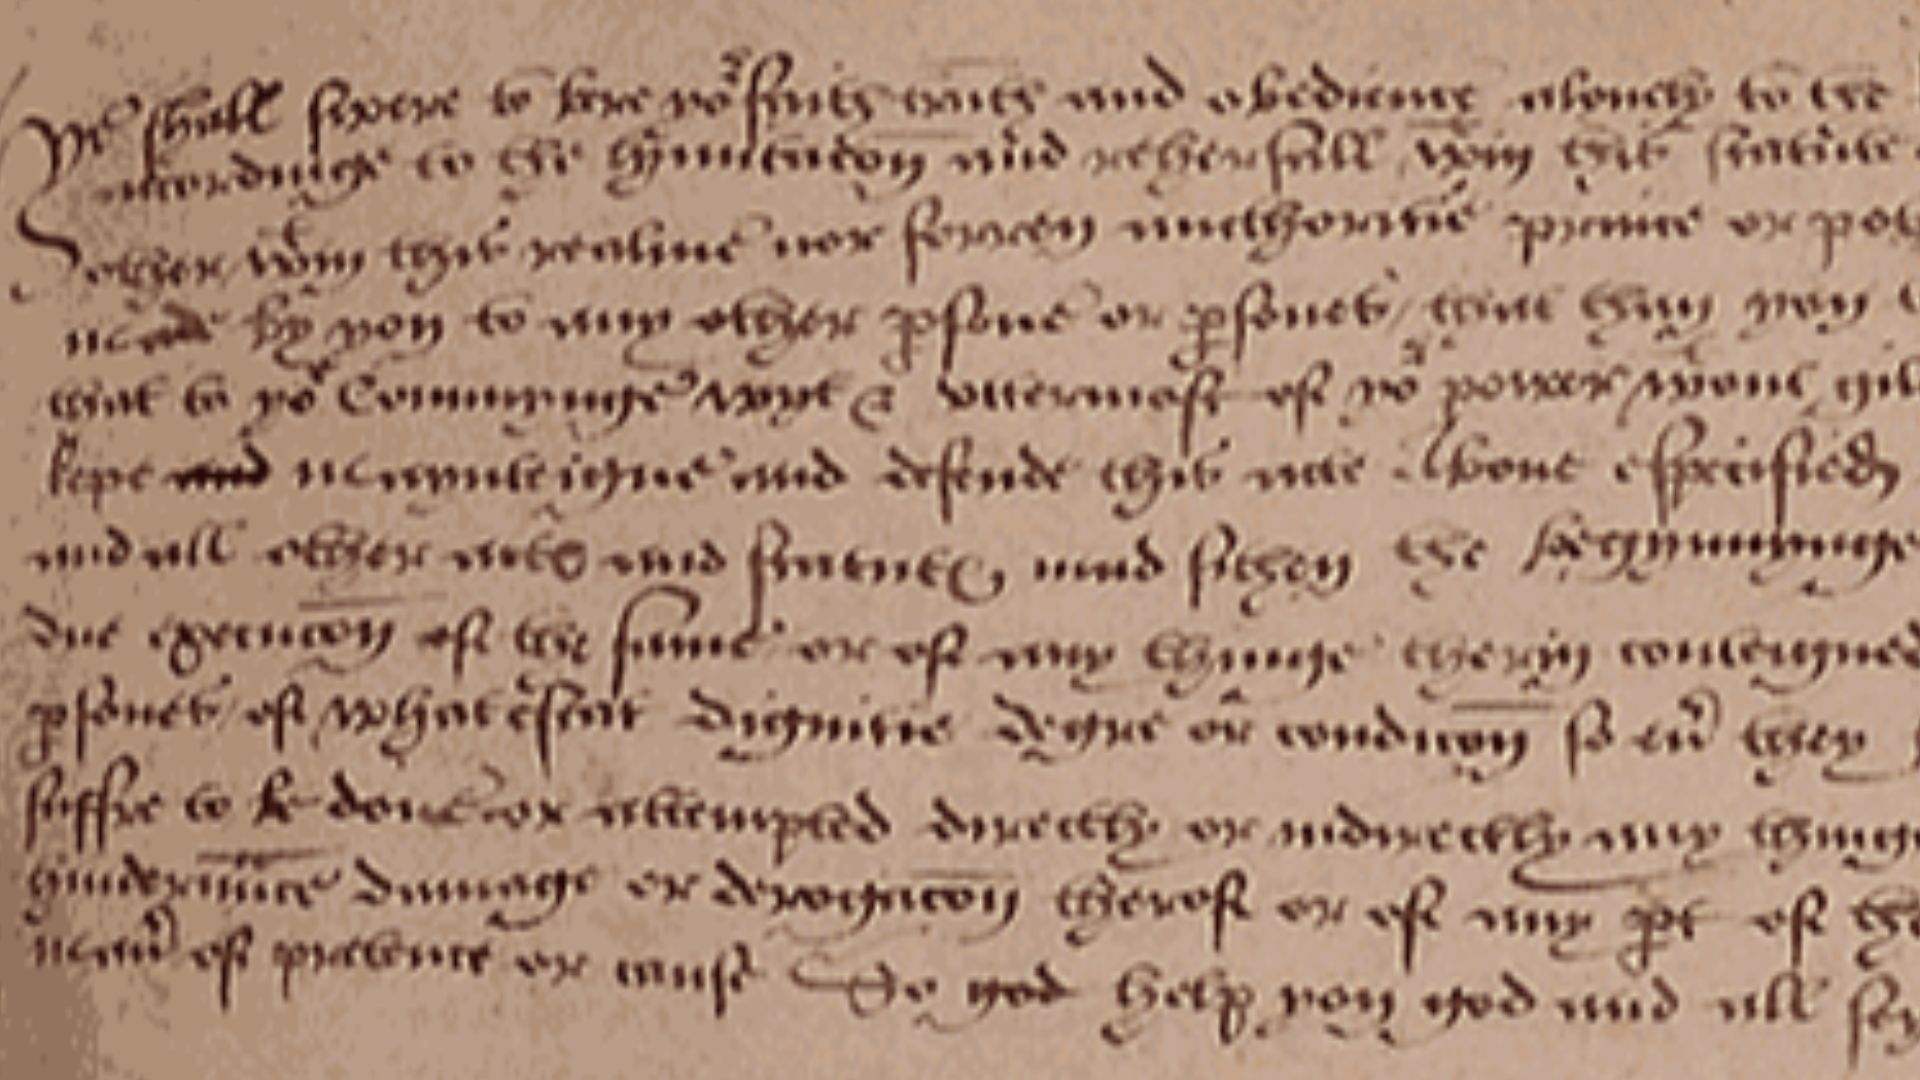 Ye shall swere to bere yor faith truth and obedience alonely to the
accordinge to the lymitacion and rehersall wtin this statute
other wtin this realme nor forren aucthoritie prince or pot
made by you to any other psone or psones that than you
that to yor Connynge wyt & uttermost of yor power wtout gil
kepe and maynteigne and defende this acte above especified
and all other acts and statutes made sithen the begynnynge
due execucon of the same or of any thinge therin conteigned
psones of what estat dignitie degre or condicon so eur they
suffre to be done or attempted directly or indirectly any thing
hinderance damage or derogacon therof or of any pt of the
maner of pretence or cause So god help you god and all